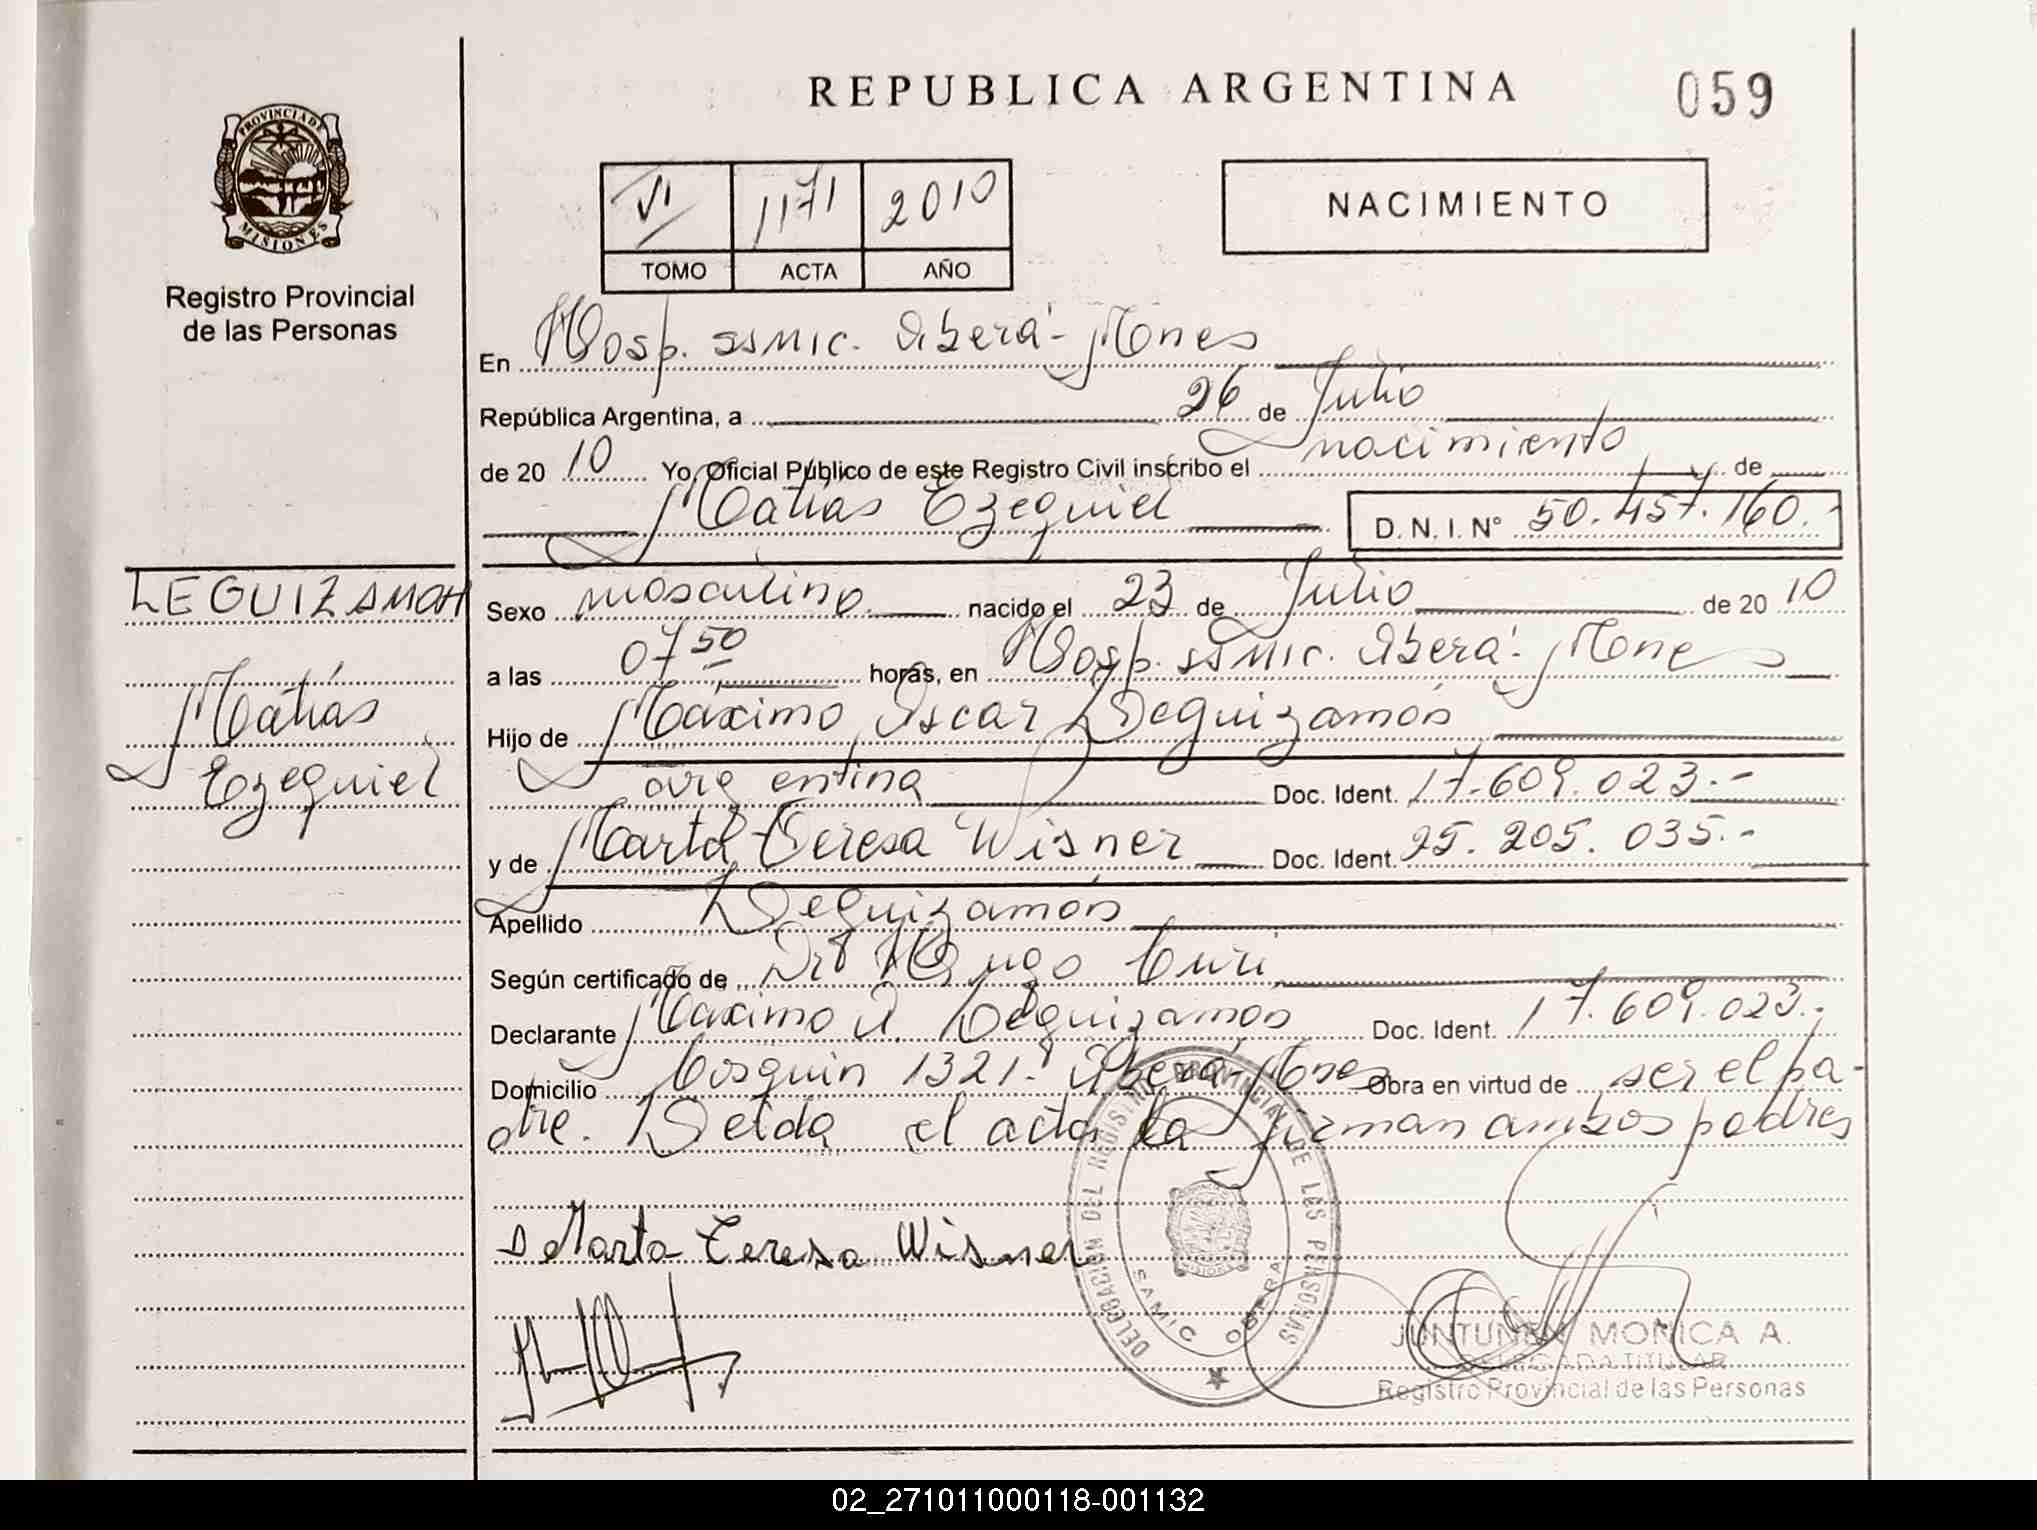 REPUBLICA ARGENTINA
059
PROVINCIA DE
MISIONES
Registro Provincial
de las Personas
VI 1171 2010
TOMO ACTA AÑO
NACIMIENTO
En Hosp. SSMIC. Oberá - Mones
República Argentina, a 26 de Julio
de 20 10 Yo, Oficial Público de este Registro Civil inscribo el nacimiento de
Matías Ezequiel D. N. I. N° 50.457.160.-
LEGUIZAMON
Matías
Ezequiel
Sexo masculino nacido el 23 de Julio de 20 10
a las 07 50 horas, en Hosp. SSMIC. Oberá - Mones
Hijo de Máximo Oscar Leguizamón
argentina Doc. Ident. 17.609.023.-
y de Marta Teresa Wisner Doc. Ident. 25.205.035.-
Apellido Leguizamón
Según certificado de Dr. Hugo Curi
Declarante Máximo O. Leguizamón Doc. Ident. 17.609.023.-
Domicilio Cosquin 1321. Oberá - Mones Obra en virtud de ser el pa-
dre. Leida el acta la firman ambos padres
Marta Teresa Wisner
DELEGACION DEL REGISTRO PROVINCIAL DE LAS PERSONAS
SAMIC OBERA
JUNTUNEN MONICA A.
DELEGADA TITULAR
Registro Provincial de las Personas
02_271011000118-001132